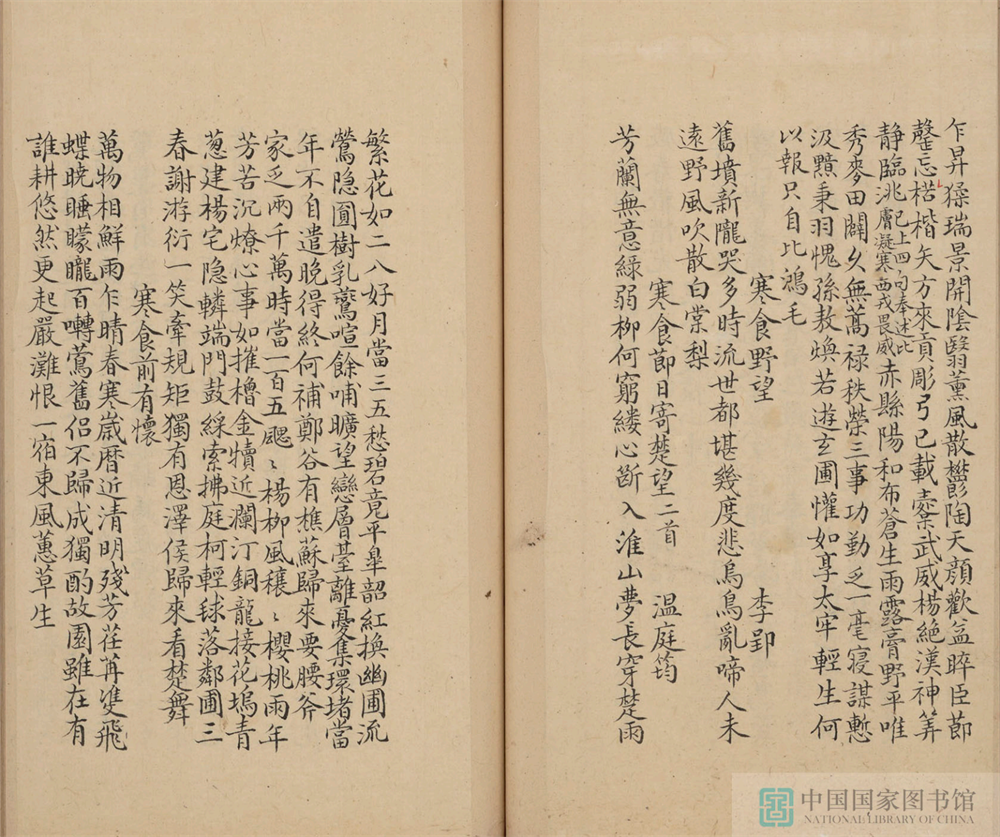 乍昇猱瑞景開陰翳薰風散欝陶天顔歡益睟臣節
罄忘楛楷矢方來貢彫弓已載櫜武威楊絶漠神筭
静臨洮已上四句奉述比層凝寒西戎畏威赤縣陽和布蒼生雨露膏野平唯
秀麥田闢久無蒿禄秩榮三事功勤乏一毫寢謀慙
汲黯秉羽愧孫敖焕若遊玄圃懽如享太牢輕生何
以報只自比鴻毛
寒食野望 李郢
舊墳新隴哭多時流世都堪幾度悲烏鳥亂啼人未
遠野風吹散白棠梨
寒食節日寄楚望二首 温庭筠
芳蘭無意緑弱柳何窮縷心斷入淮山夢長穿楚雨
繁花如二八好月當三五愁碧竟平皐韶紅換幽圃流
鶯隐圓樹乳鷰喧餘哺曠望戀層臺離憂集環堵當
年不自遣晚得終何補鄭谷有樵蘇歸來要腰斧
家乏兩千萬時當一百五颸〻楊柳風穰〻櫻桃雨年
芳苦沉燎心事如摧櫓金犢近瀾汀銅龍接花塢青
葱建楊宅隐轔端門鼓綵索拂庭柯輕毬落鄰圃三
春謝游衍一笑牽規矩獨有恩澤侯歸來看楚舞
寒食前有懷
萬物相鮮雨乍晴春寒嵗曆近清明殘芳荏苒雙飛
蝶曉睡矇矓百囀鶯舊侣不歸成獨酌故園雖在有
誰耕悠然更起嚴灘恨一宿東風蕙草生
中国国家图书馆
NATIONAL LIBRARY OF CHINA